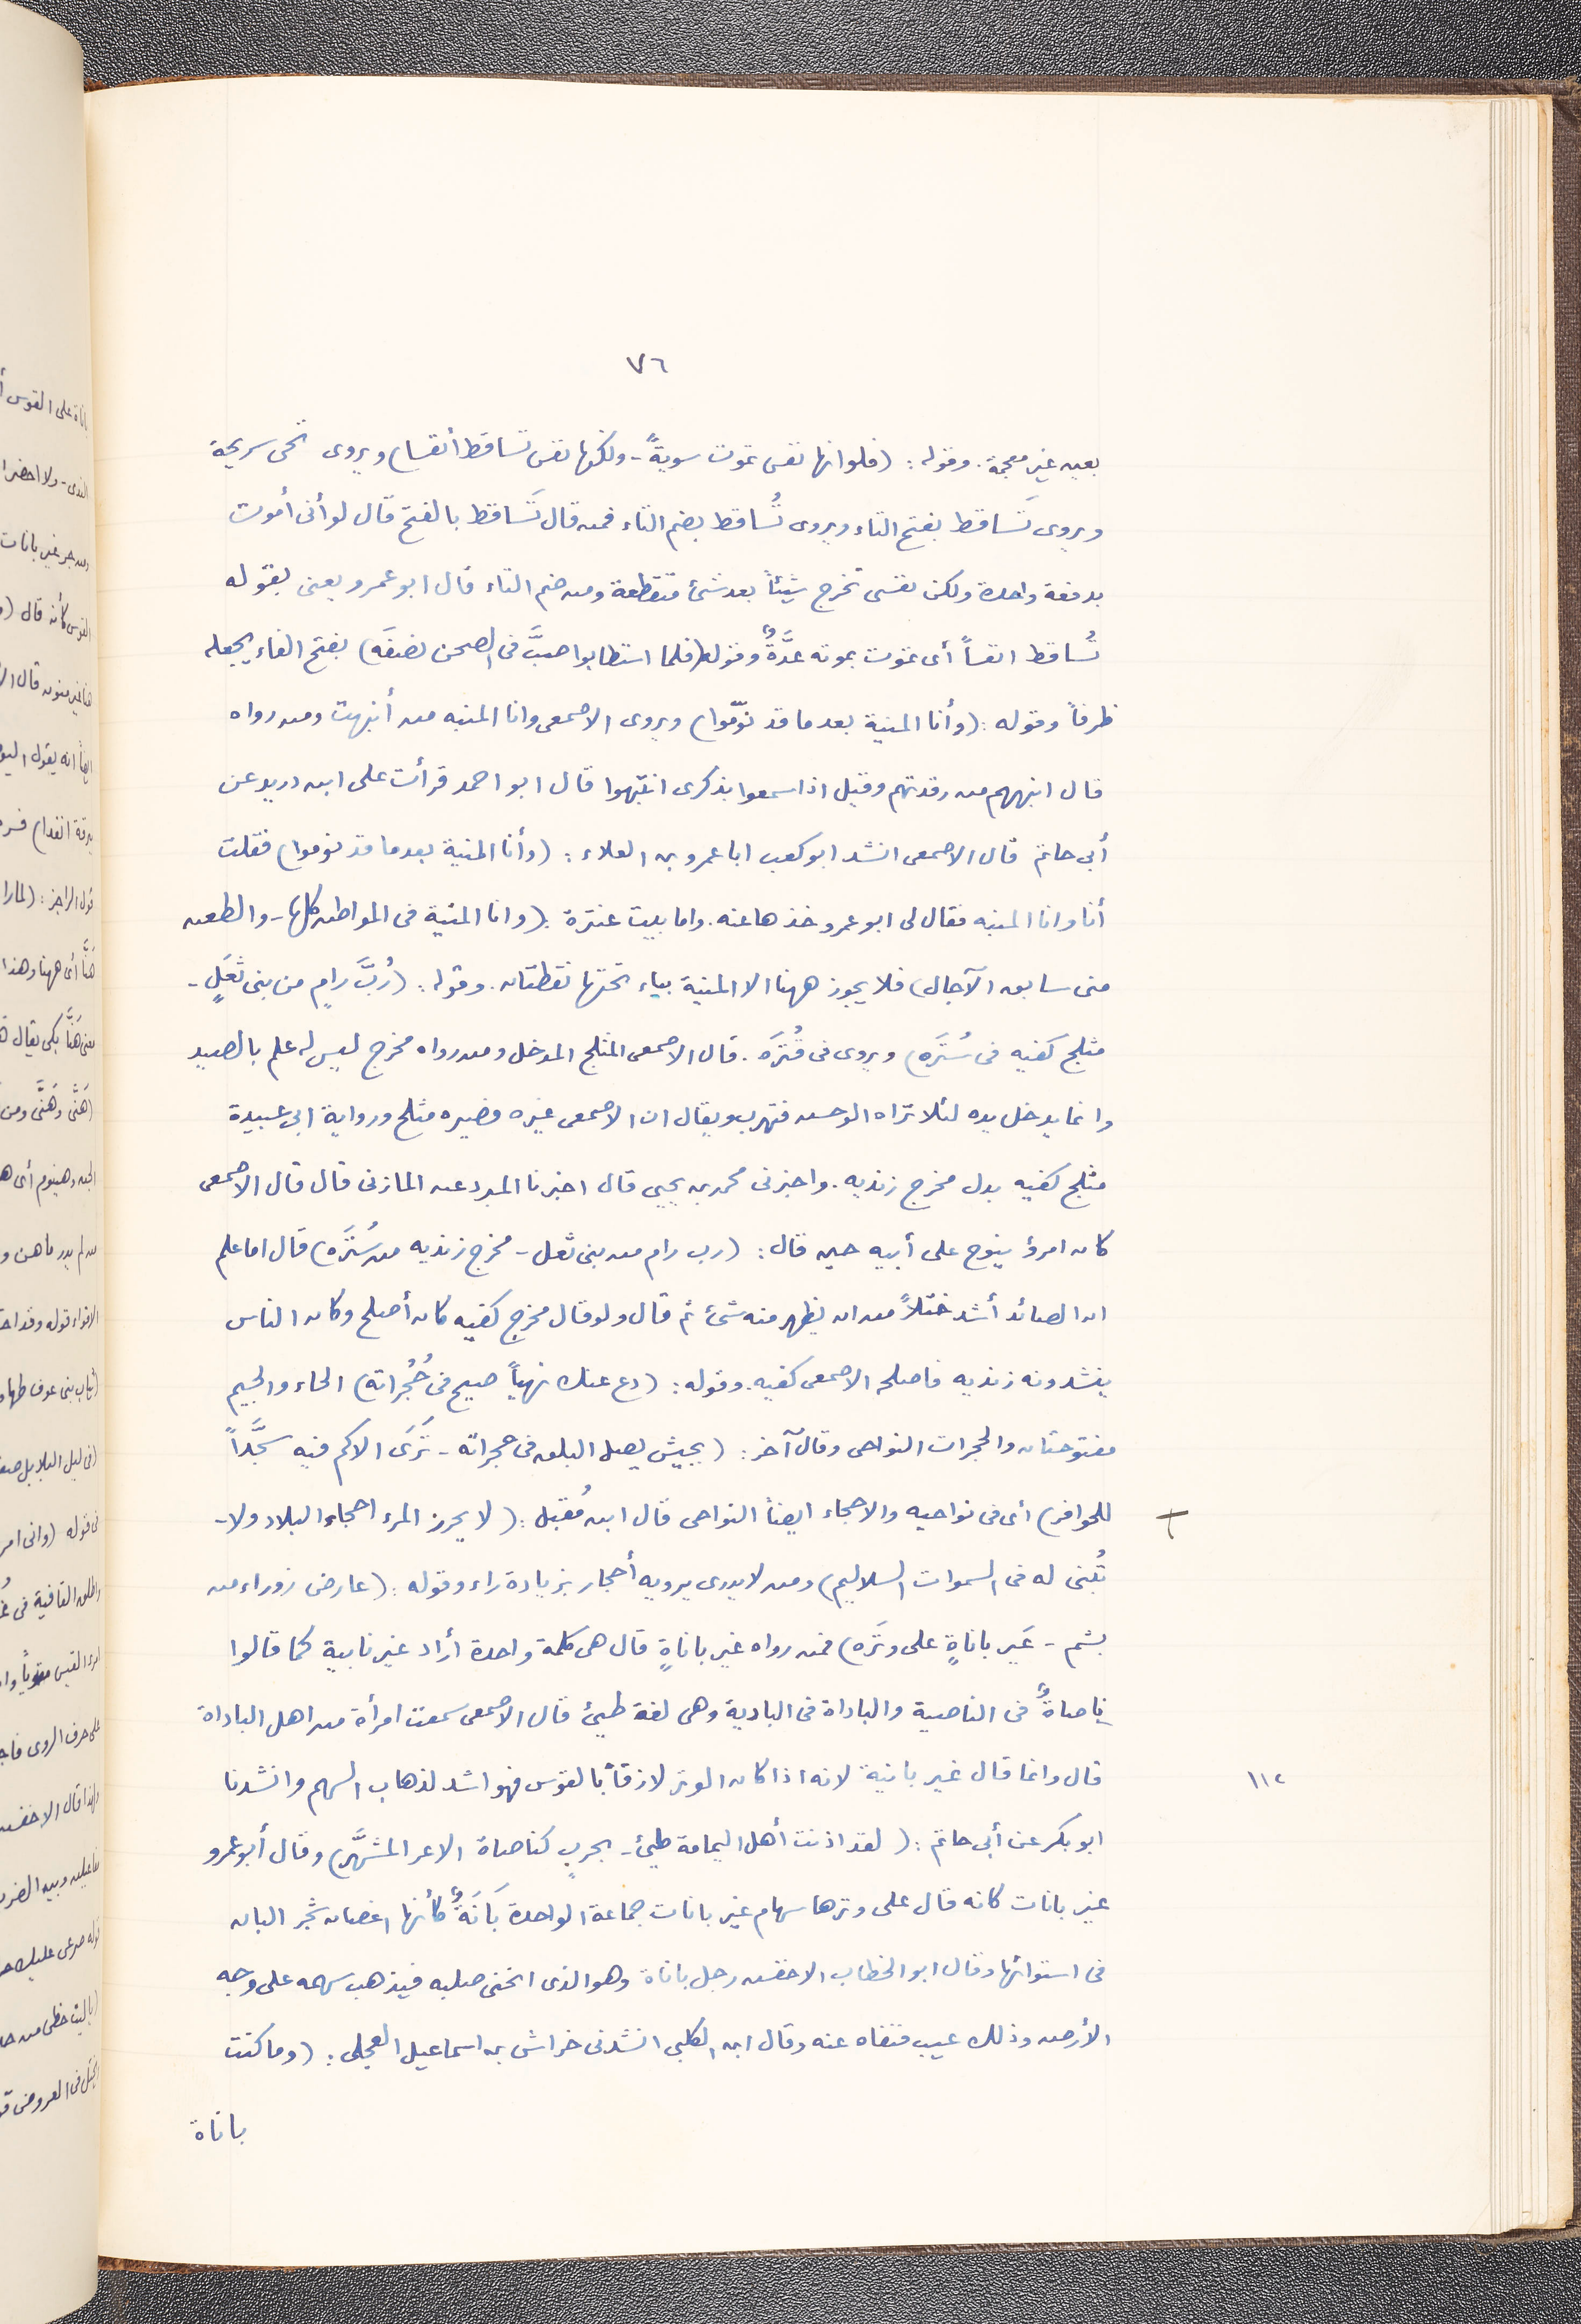 ٧٦
بعين غير معجمة. وقوله: (فلو انها نفس تموت سويةً - ولكنها نفس تساقط أنفسا) ويروى تحى سريحة
ويروى تَساقط بفتح التاء ويروى تُساقط بضم التاء فمن قال تَساقط بالفتح قال لو أنى أموت
بدفعة واحدة ولكن نفسى تخرج شيئاً بعد شئ متقطعة ومن ضم التاء قال ابو عمرو يعنى بقوله
تُساقط انفساً أى تموت بموته عدَّةٌ وقوله (فلما استطابوا صبَّ فى الصحن نصفَه) بفتح الفاء يجعله
ظرفاً وقوله: (وأنا المنية بعد ما قد نوّموا) ويروى الاصمعى وانا المنبه من أنبهت ومن رواه
قال انبههم من رقدتهم وقيل اذا سمعوا بذكرى انتبهوا قال ابو احمد قرأت على ابن دريد عن
أبى حاتم قال الاصمعى انشد ابو كعب ابا عمرو بن العلاء: (وأنا المنية بعد ما قد نوموا) فقلت
أنا وانا المنبه فقال لى ابو عمرو خذها عنه. واما بيت عنترة: (وانا المنية فى المواطن كلها - والطعن
منى سابق الآجال) فلا يجوز ههنا الا المنية بياء تحتها نقطتان. وقوله: (رُبَّ رامٍ من بنى ثعَلٍ -
مثلج كفيه فى سُتَرَه) ويروى فى قُتَرَه. قال الاصمعى المثلج المدخل ومن رواه مخرج ليس له علم بالصيد
وانما يدخل يده لئلا تراه الوحش فتهرب ويقال ان الاصمعى غيره فصيره مثلج ورواية ابى عبيدة
مثلج كفيه بدل مخرج زنديه. واخبرنى محمد بن يحيى قال اخبرنا المبرد عن المازنى قال قال الاصمعى
كان امرؤ ينوح على أبيه حين قال: (رب رام من بنى ثعل - مخرج زنديه من سُتَرَه) قال اما علم
ان الصائد أشد ختلاً من ان يظهر منه شئ ثم قال ولو قال مخرج كفيه كان أصلح وكان الناس
ينشدونه زنديه فاصلحه الاصمعى كفيه. وقوله: (دع عنك نهباً صيح فى حُجُراته) الحاء والجيم
مفتوحتان والحجرات النواحى وقال آخر: (بجيش يصل البلق فى حجراته - تَرَى الاكم فيه سجَّداً
للحوافر) أى فى نواحيه والاحجاء ايضاً النواحى قال ابن مُقبل: (لا يحرز المرء احجاء البلاد ولا -
تُبْنى له فى السموات السلاليم) ومن لا يدرى يرويه أحجار بزيادة راء وقوله: (عارض زوراء من
نشم - غَير باناةٍ على وتَره) فمن رواه غير باناةٍ قال هى كلمة واحدة أراد غير بانية كما قالوا
ناصاةٌ فى الناصية والباداة فى البادية وهى لغة طيئ قال الاصمعى سمعت امرأة من اهل الباداة
قال وانما قال غير بانية لانه اذا كان الوتر لازقاً بالقوس فهو اشد لذهاب السهم وانشدنا
١١٢
ابو بكر عن أبى حاتم: (لقد اذنت أهل اليمامة طيئ - بحربٍ كناصاة الاعر المشهَّر) وقال أبو عمرو
غير بانات كانه قال على وترها سهام غير بانات جماعة الواحدة بَانَةٌ كأنها اغصان شجر البان
فى استوائها وقال ابو الخطاب الاخفش رجل باناة وهو الذى انحنى صلبه فيذهب سهمه على وجه
الأرض وذلك عيب فنفاه عنه وقال ابن الكلبى انشدنى خراش بن اسماعيل العجلى: (وما كنت
باناة